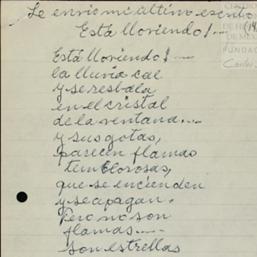 Le envio mi último escrito
Está lloviendo!....
Está lloviendo!....
la lluvia cae
y se resbala
en el cristal
de la ventana....
y sus gotas,
parecen flamas
temblorosas,
que se encienden
y se apagan.
Pero no son
flamas....
son estrellas